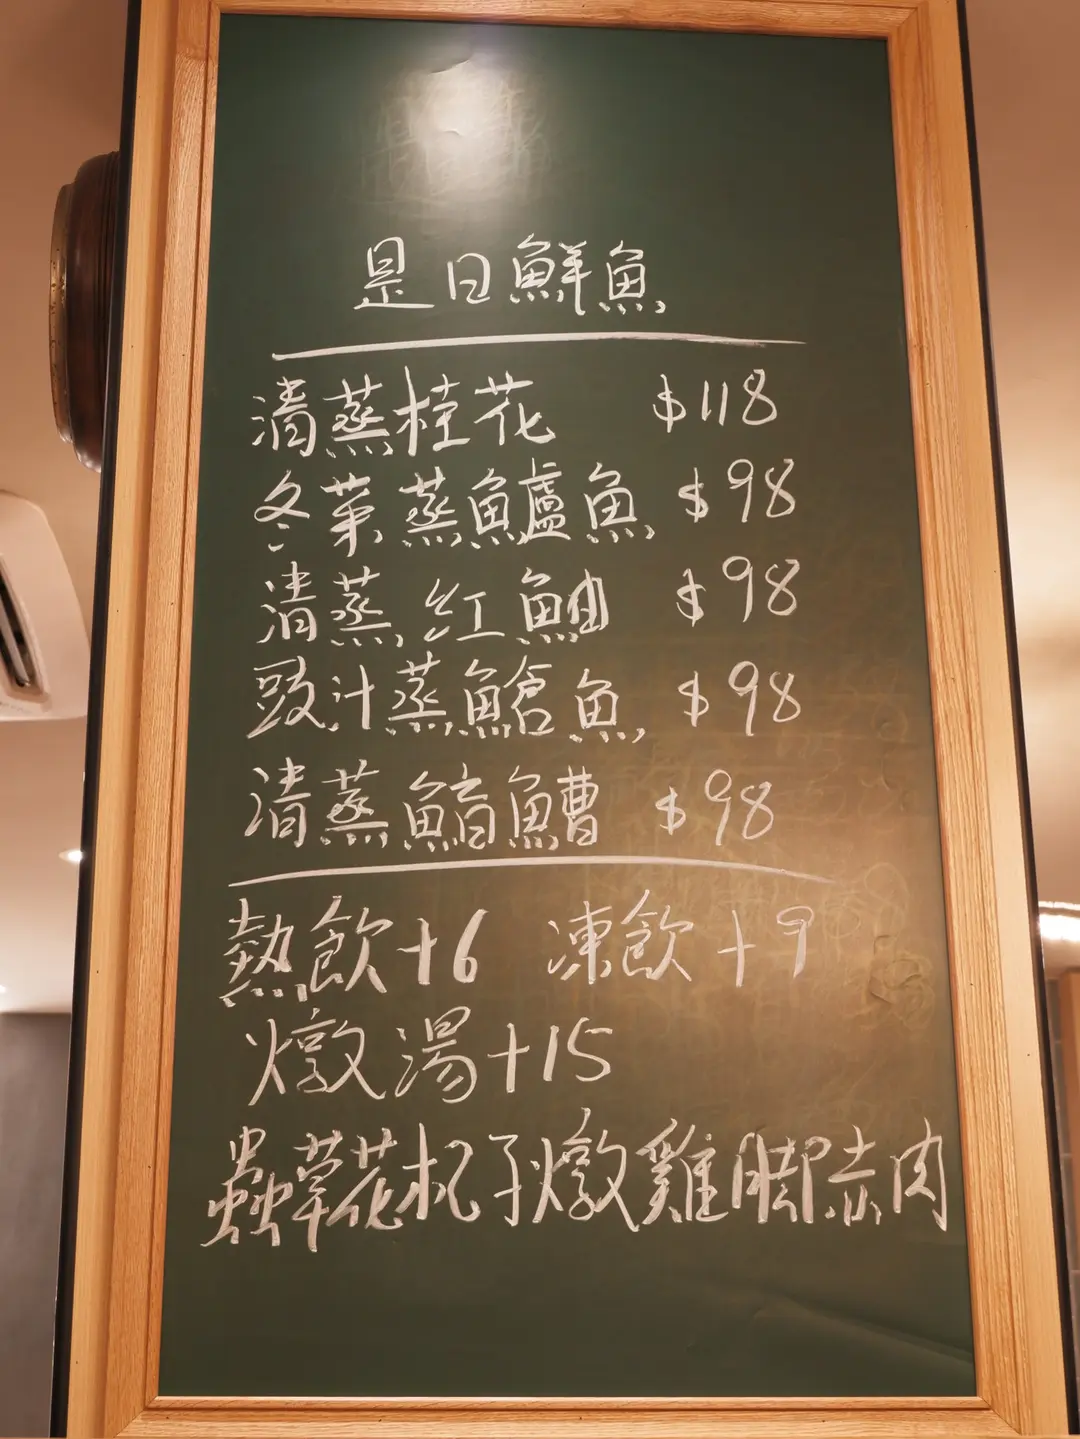 是日鮮魚
清蒸桂花 $118
冬菜蒸鱸魚 $98
清蒸紅鮋 $98
豉汁蒸鯧魚 $98
清蒸䱽鰽 $98
熱飲+6 凍飲+9
燉湯+15
蟲草花杞子燉雞脚赤肉